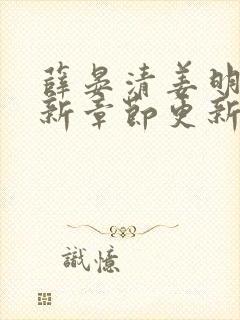 薛晏清姜明
新章節更新
識憶